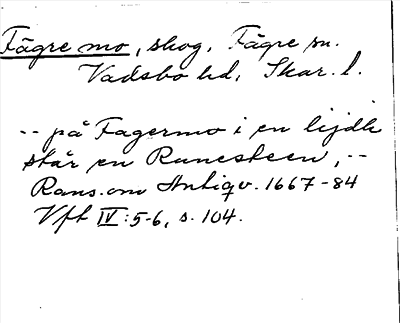 Fägre mo, skog. Fägre sn.
Vadsbo hd, Skar. l.
-- på Fagermo i en lijdh
står en Runesteen, --
Rans. om Antiqv. 1667-84
Vft IV:5-6, s. 104.